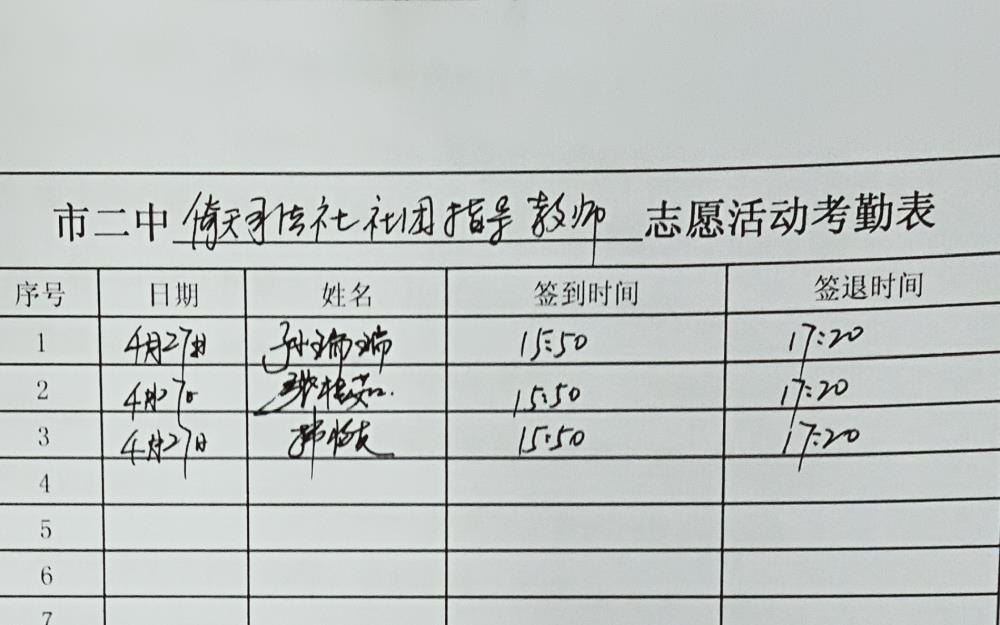 市二中 倚天书法社社团指导教师 志愿活动考勤表
序号 日期 姓名 签到时间 签退时间
1 4月27日 孙瑞瑞 15:50 17:20
2 4月27日 15:50 17:20
3 4月27日 15:50 17:20
4
5
6
7